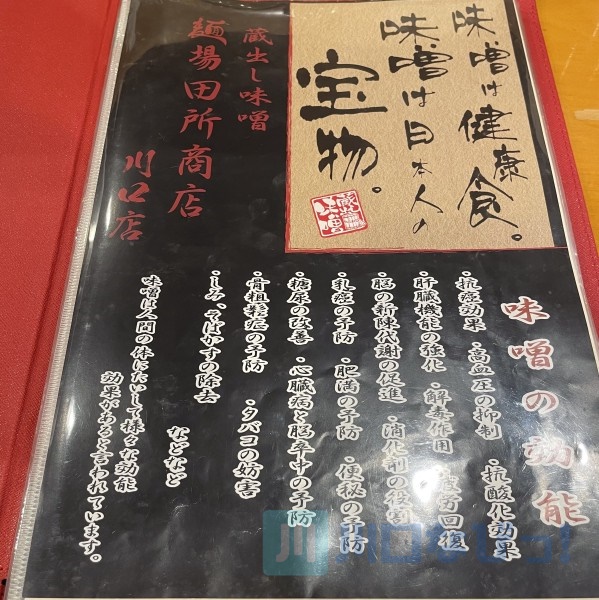 味噌は健康食。
味噌は日本人の
宝物。
蔵出し味噌
麺場田所商店
川口店
味噌の効能
・抗癌効果 ・高血圧の抑制 ・抗酸化効果
・肝臓機能の強化 ・解毒作用 ・疲労回復
・脳の新陳代謝の促進 ・消化剤の役割
・乳癌の予防 ・肥満の予防 ・便秘の予防
・糖尿の改善 ・心臓病と脳卒中の予防
・骨粗鬆症の予防 ・タバコの妨害
・しみ、そばかすの除去
などなど
味噌は人間の体にたいして様々な効能
効果があると言われています。